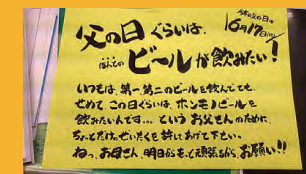 今年の父の日は
6月17日(日)!
父の日ぐらいは、
ほんとのビールが飲みたい!
いつもは、第一、第二のビールを飲んでても、
せめて この日くらいは、ホンモノビールを
飲みたいんです… という お父さんのために、
ちょっとだけ、ぜいたくを 許してあげて下さい。
ねっ、お母さん、明日からもっと頑張るから、お願い!!